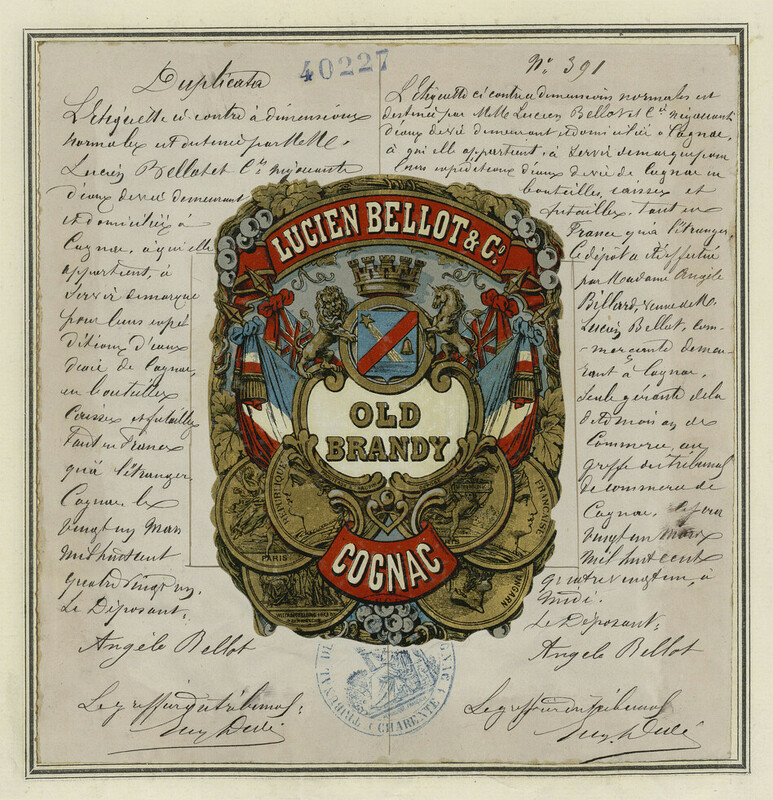 Duplicata
40227
N° 391
L'Etiquette ci contre à dimensions
normales est destinée par MM.
Lucien Bellot et Cie négociants
d'eaux de vie demeurant
et domiciliés à
Cognac, à qui elle
appartient, à
servir de marque
pour leurs expé
ditions d'eaux
de vie de Cognac,
en bouteilles
Caisses et futailles
tant en France
qu'à l'étranger
Cognac le
vingt un Mars
mil huit cent
quatre vingt un.
Le Déposant,
Angèle Bellot
Le greffier du tribunal:
L'Etiquette ci contre à dimensions normales est
destinée par MM Lucien Bellot et Cie négociants
d'eaux de vie demeurant et domiciliés à Cognac,
à qui elle appartient, à servir de marque pour
leurs expéditions d'eaux de vie de Cognac en
bouteilles, caisses et
futailles, tant en
France qu'à l'étranger,
Le dépôt a été effectué
par Madame Angèle
Billard, veuve de M.
Lucien Bellot, com-
merçante demeu-
rant à Cognac,
Seule gérante de la
dite maison de
Commerce, au
greffe du Tribunal
de commerce de
Cognac, le
vingt un mars
mil huit cent
quatre vingt un, à
midi.
Le Déposant,
Angèle Bellot
Le greffier du tribunal
LUCIEN BELLOT & Co.
OLD
BRANDY
RÉPUBLIQUE
FRANÇAISE
PARIS
UNGARN
COGNAC
TRIBUNAL DE
CHARENTE